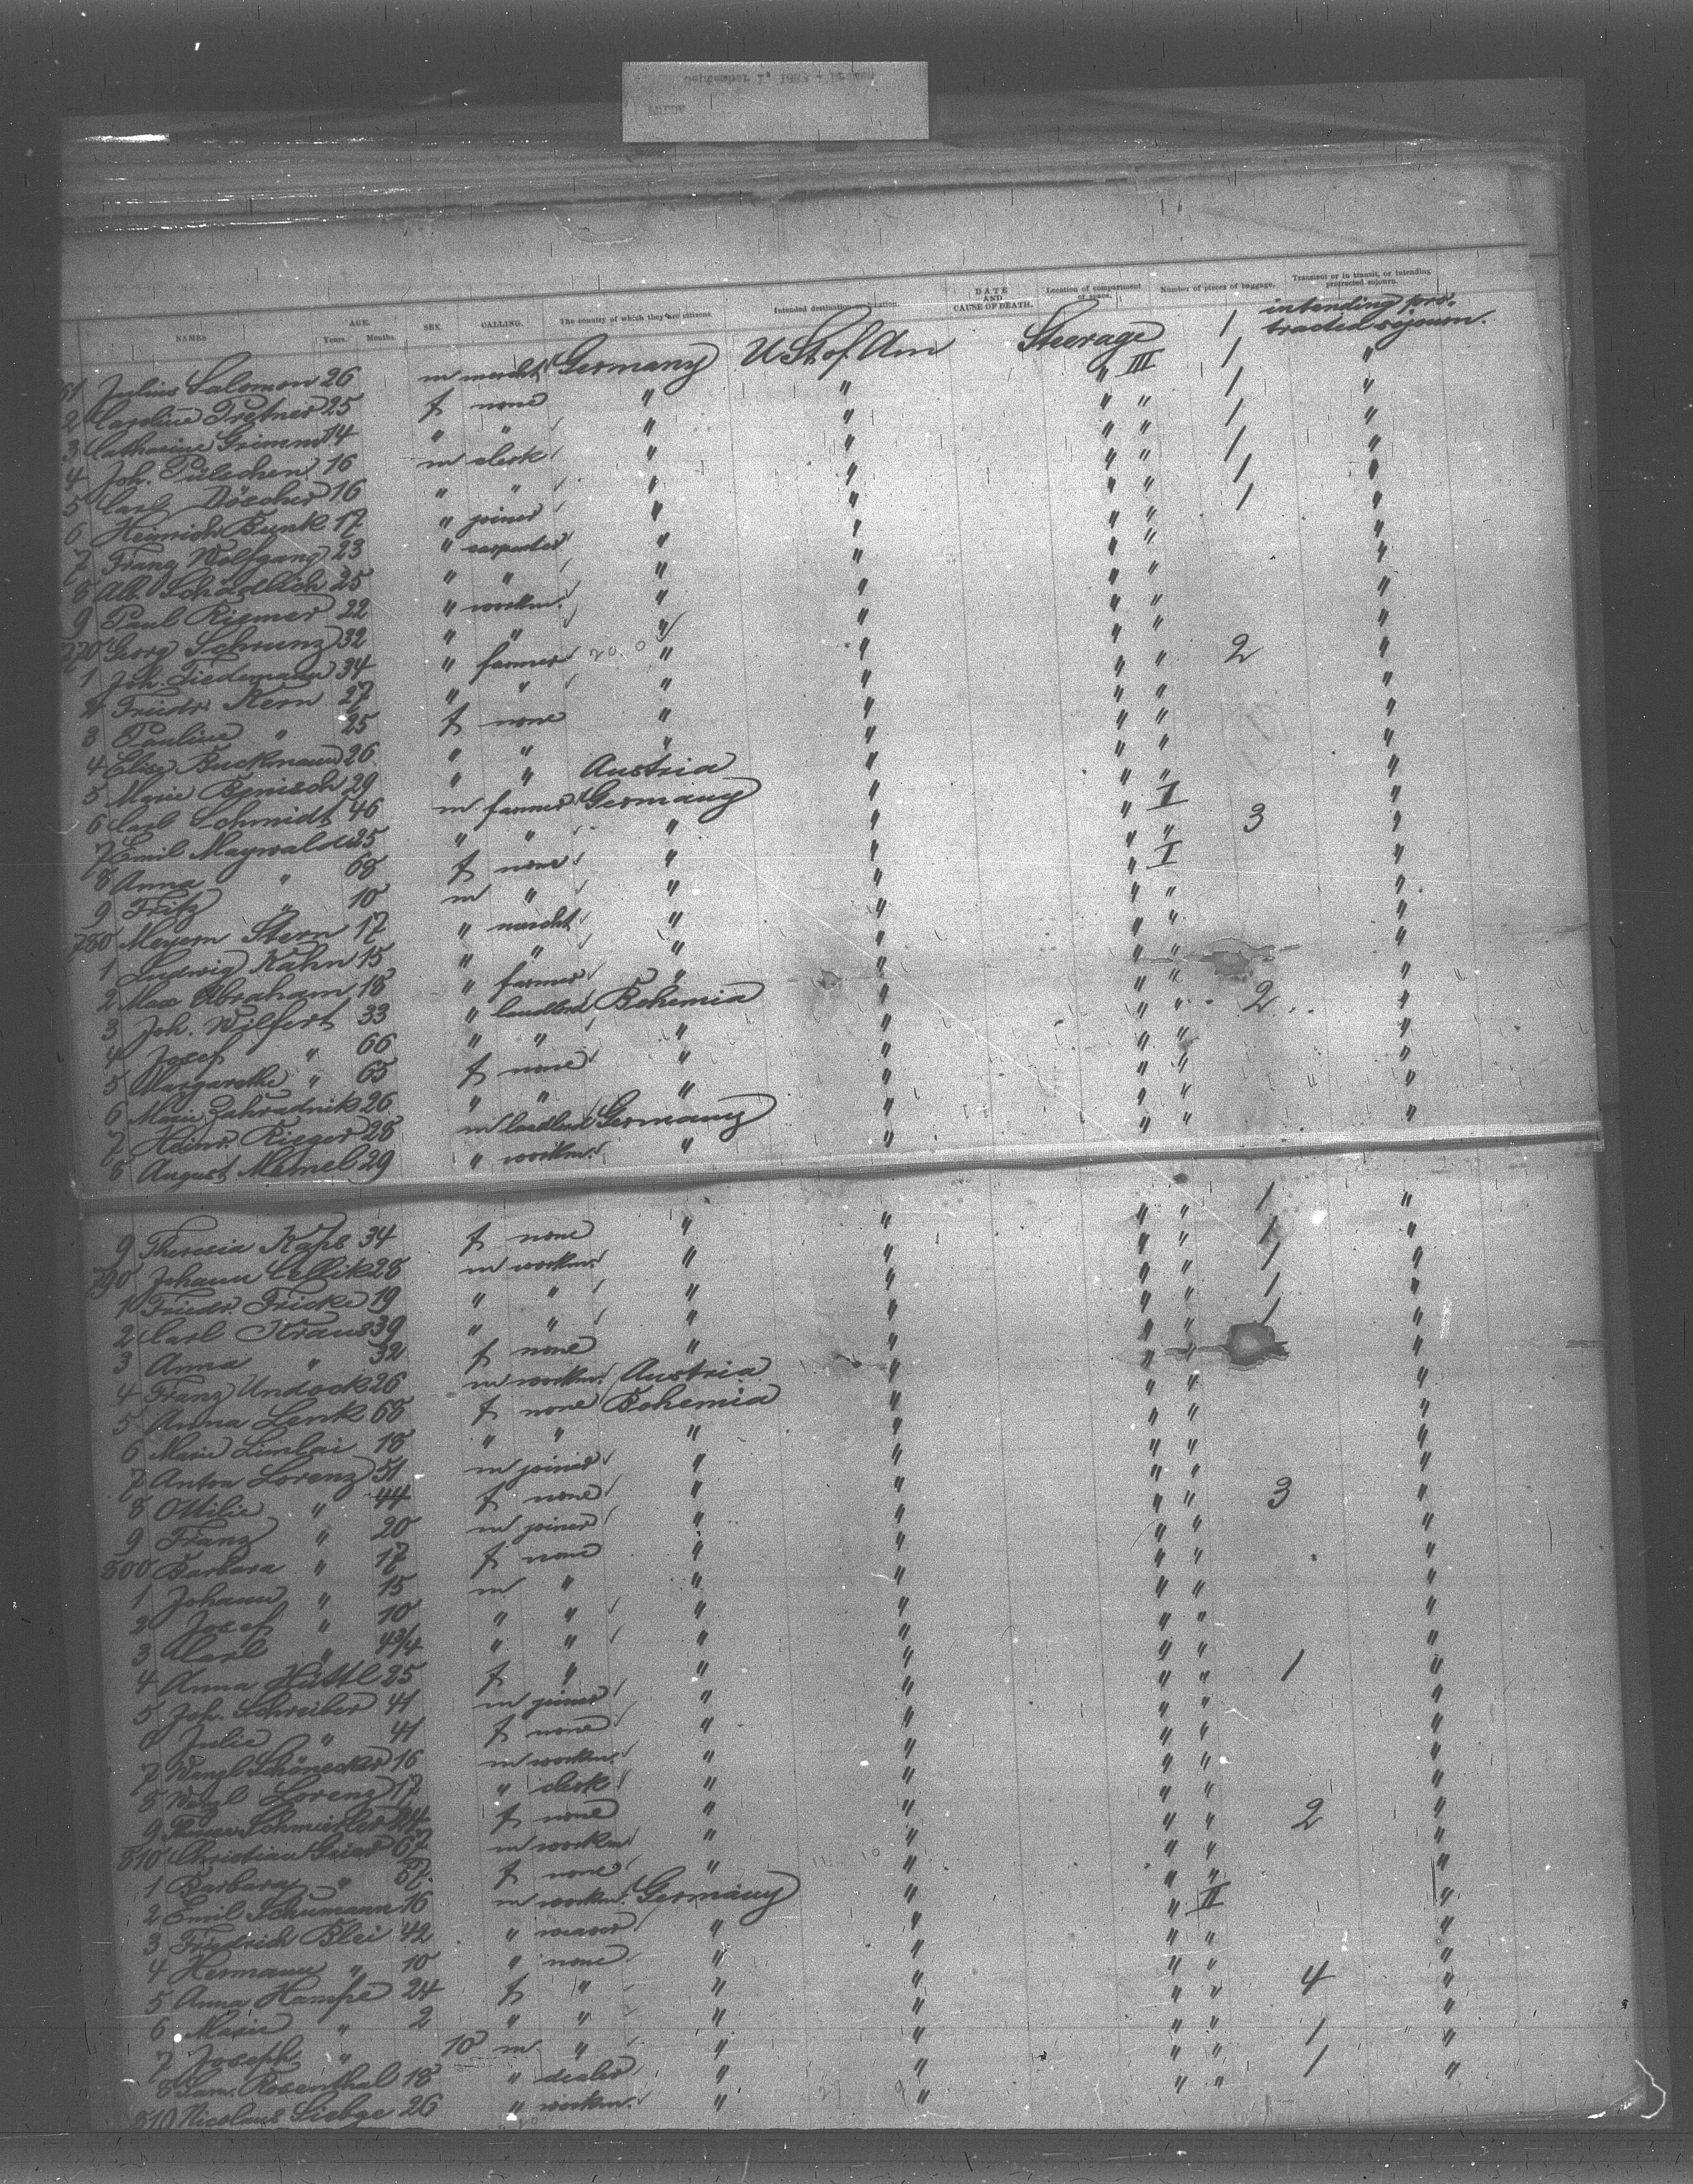 September 1, 1883 - Bremen
NAMES AGE. Years. Months. SEX. CALLING. The country of which they are citizens. Intended destination or location. DATE AND CAUSE OF DEATH. Location of compartment or space. Number of pieces of baggage. Transient or in transit, or intending protracted sojourn.
61 Julius Salomon 26 m mercht Germany U St of Am Steerage III 1 intending pro-tracted sojourn.
2 Caroline 25 f none " " " " 1 "
3 Catharine Grimm 14 " " " " " " 1 "
4 Joh. 16 m clerk " " " " 1 "
5 Carl Döscher 16 " " " " " " 1 "
6 Heinrich Bunk 17 " joiner " " " " 1 "
7 Franz Wolfgang 23 " carpenter " " " " 1 "
8 Alb. Schädlich 25 " " " " " " "
9 Paul Riemer 22 " workm. " " " " "
770 Georg Schrunz 32 " " " " " " "
1 Joh. Tiedemann 34 " farmer " " " " "
2 Friedr. Kern 27 " " " " " " 2 "
3 Pauline " 25 f none " " " " "
4 Elise Buckmann 26 " " " " " " "
5 Marie Benisch 29 " " Austria " " " "
6 Carl Schmidt 46 m farmer Germany " " II "
7 Emil Maywald 25 " " " " " " 3 "
8 Anna " 68 f none " " " I "
9 Fritz " 10 m " " " " " "
780 Meyern Stern 17 " mercht " " " " "
1 Ludwig Kahn 15 " " " " " " "
2 Max Abraham 18 " farmer " " " " "
3 Joh. Wilfert 33 " landlord Bohemia " " " 2 "
4 Josef " 66 " " " " " " "
5 Margarethe " 65 f none " " " " "
6 Marie Zahradnik 26 " " " " " " "
7 Heinr. Rieger 28 m landlord Germany " " " "
8 August Memel 29 " workm. " " " " "
9 Theresia Kaps 34 f none " " " " 1 "
790 Johann Cellik 28 m workm. " " " " 1 "
1 Friedr. Fricke 19 " " " " " " 1 "
2 Carl Kraus 39 " " " " " " 1 "
3 Anna " 32 f none " " " " 1 "
4 Franz Undock 26 m workm. Austria " " " "
5 Anna Lenk 68 f none Bohemia " " " "
6 Marie Limlai 18 " " " " " " "
7 Anton Lorenz 51 m joiner " " " " "
8 Ottilie " 44 f none " " " " 3 "
9 Franz " 20 m joiner " " " " "
800 Barbara " 17 f none " " " " "
1 Johann " 15 m " " " " " "
2 Josef " 10 " " " " " " "
3 Carl " 4 3/4 " " " " " " "
4 Anna Hüttl 25 f " " " " " 1 "
5 Joh. Schreiber 41 m joiner " " " " "
6 Julie " 41 f none " " " " "
7 Wenzl Schönecker 16 m workm. " " " " "
8 Wenzl Lorenz 17 " clerk " " " " "
9 Schmierler 24 f none " " " " 2 "
810 Christian Geier 67 m workm " " " " "
1 Barbara " 57 f none " " " " "
2 Emil Schumann 16 m workm. Germany " " II "
3 Friedrich Blei 42 " weaver " " " " "
4 Hermann " 10 " none " " " " "
5 Anna Hampe 24 f " " " " " 4 "
6 Marie " 2 " " " " " " "
7 Joseph " 10 m " " " " " 1 "
8 Sam. Rosenthal 18 " dealer " " " " 1 "
810 Nicolaus Siebge 26 " workm. " "